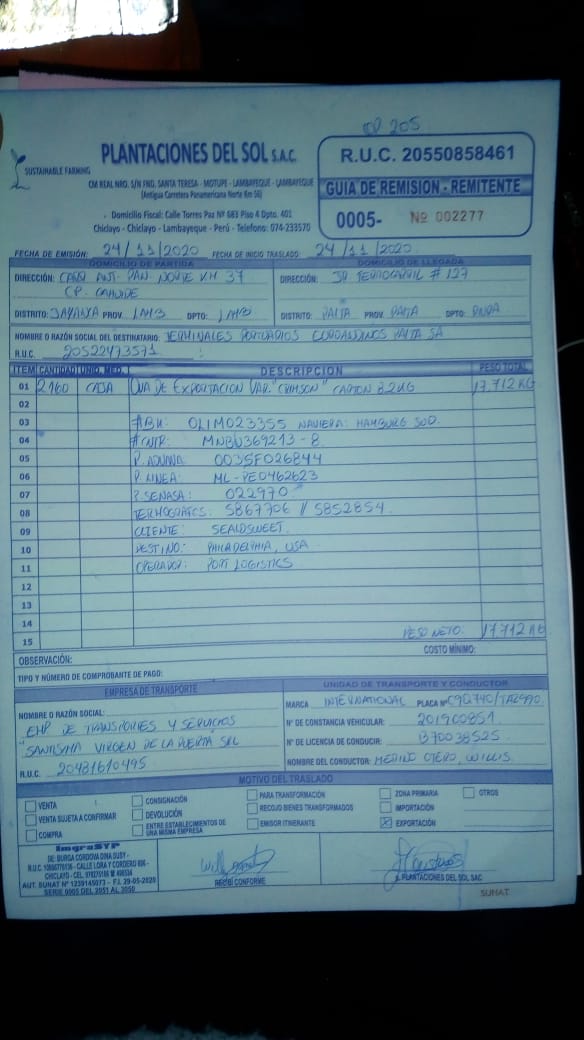 OP 205
PLANTACIONES DEL SOL S.A.C.
SUSTAINABLE FARMING
CM REAL NRO. S/N FND. SANTA TERESA - MOTUPE - LAMBAYEQUE - LAMBAYEQUE
(Antigua Carretera Panamericana Norte Km 56)
Domicilio Fiscal: Calle Torres Paz Nº 683 Piso 4 Dpto. 401
Chiclayo - Chiclayo - Lambayeque - Perú - Telefono: 074-233570
R.U.C. 20550858461
GUIA DE REMISION - REMITENTE
0005- Nº 002277
FECHA DE EMISIÓN: 24/11/2020 FECHA DE INICIO TRASLADO: 24/11/2020
DOMICILIO DE PARTIDA
DIRECCIÓN: ANT. PAN. NORTE KM 37
CP. CAHUIDE
DISTRITO: JAYANCA PROV. LAMB DPTO: LAMB
DOMICILIO DE LLEGADA
DIRECCIÓN: JR FERROCARRIL # 127
DISTRITO: PAITA PROV. PAITA DPTO: PIURA
NOMBRE O RAZÓN SOCIAL DEL DESTINATARIO: TERMINALES PORTUARIOS EUROANDINOS PAITA SA
R.U.C. 20522473571
ITEM CANTIDAD UNID. MED. DESCRIPCION PESO TOTAL
01 2160 CAJA UVA DE EXPORTACION VAR. "CRIMSON" CARTON 8.2KG 17.712 KG
02
03 # BK: OLIM023355 NAVIERA: HAMBURG SUD.
04 # CNTR: MNBU369213-8
05 P. ADUANA: 003SF026844
06 P. LINEA: ML-PE0462623
07 P. SENASA: 022970
08 TERMOGRAFOS: S867706 // S852854
09 CLIENTE: SEALDSWEET.
10 DESTINO: PHILADELPHIA, USA
11 OPERADOR: PORT LOGISTICS
12
13
14
15 PESO NETO: 17.712 KG
OBSERVACIÓN: COSTO MÍNIMO:
TIPO Y NÚMERO DE COMPROBANTE DE PAGO:
EMPRESA DE TRANSPORTE
NOMBRE O RAZÓN SOCIAL:
EMP DE TRANSPORTES Y SERVICIOS
"SANTISIMA VIRGEN DE LA PUERTA" SRL
R.U.C. 20481610495
UNIDAD DE TRANSPORTE Y CONDUCTOR
MARCA INTERNATIONAL PLACA Nº C9Q740/
Nº DE CONSTANCIA VEHICULAR: 201900851
Nº DE LICENCIA DE CONDUCIR: B70038525
NOMBRE DEL CONDUCTOR: MEDINO OTERO, WILLIS
MOTIVO DEL TRASLADO
VENTA
VENTA SUJETA A CONFIRMAR
COMPRA
CONSIGNACIÓN
DEVOLUCIÓN
ENTRE ESTABLECIMIENTOS DE UNA MISMA EMPRESA
PARA TRANSFORMACIÓN
RECOJO BIENES TRANSFORMADOS
EMISOR ITINERANTE
ZONA PRIMARIA
IMPORTACIÓN
EXPORTACIÓN
OTROS
ImgraSYP
DE: BURGA CORDOVA DINA SUSY -
CALLE LORA Y CORDERO
CHICLAYO - CEL.
AUT. SUNAT Nº 1239145073 - F.I. 29-05-2020
SERIE 0005 DEL 2051 AL 3050
RECIBÍ CONFORME
p. PLANTACIONES DEL SOL SAC
SUNAT